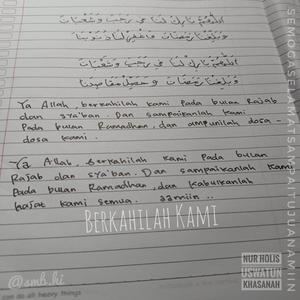 اللهم بارك لنا في رجب وشعبان
وبلغنا رمضان فاغفر لنا ذنوبنا
اللهم بارك لنا في رجب وشعبان
وبلغنا رمضان وحصل مقاصدنا
Ya Allah, berkahilah kami pada bulan Rajab
dan sya'ban. Dan sampaikanlah Kami
Pada bulan Ramadhan, dan ampunilah dosa-
dosa kami.
Ya Allah, Berkahilah kami Pada bulan
Rajab dan sya'ban. Dan sampaikanlah Kami
Pada bulan Ramadhan, dan Kabulkanlah
hajat kami semua. aamiin ..
BERKAHILAH KAMI
NUR HOLIS
USWATUN
KHASANAH
SEMOGASELAMATSAMPAITUJUANAMIIN
can do all heavy things